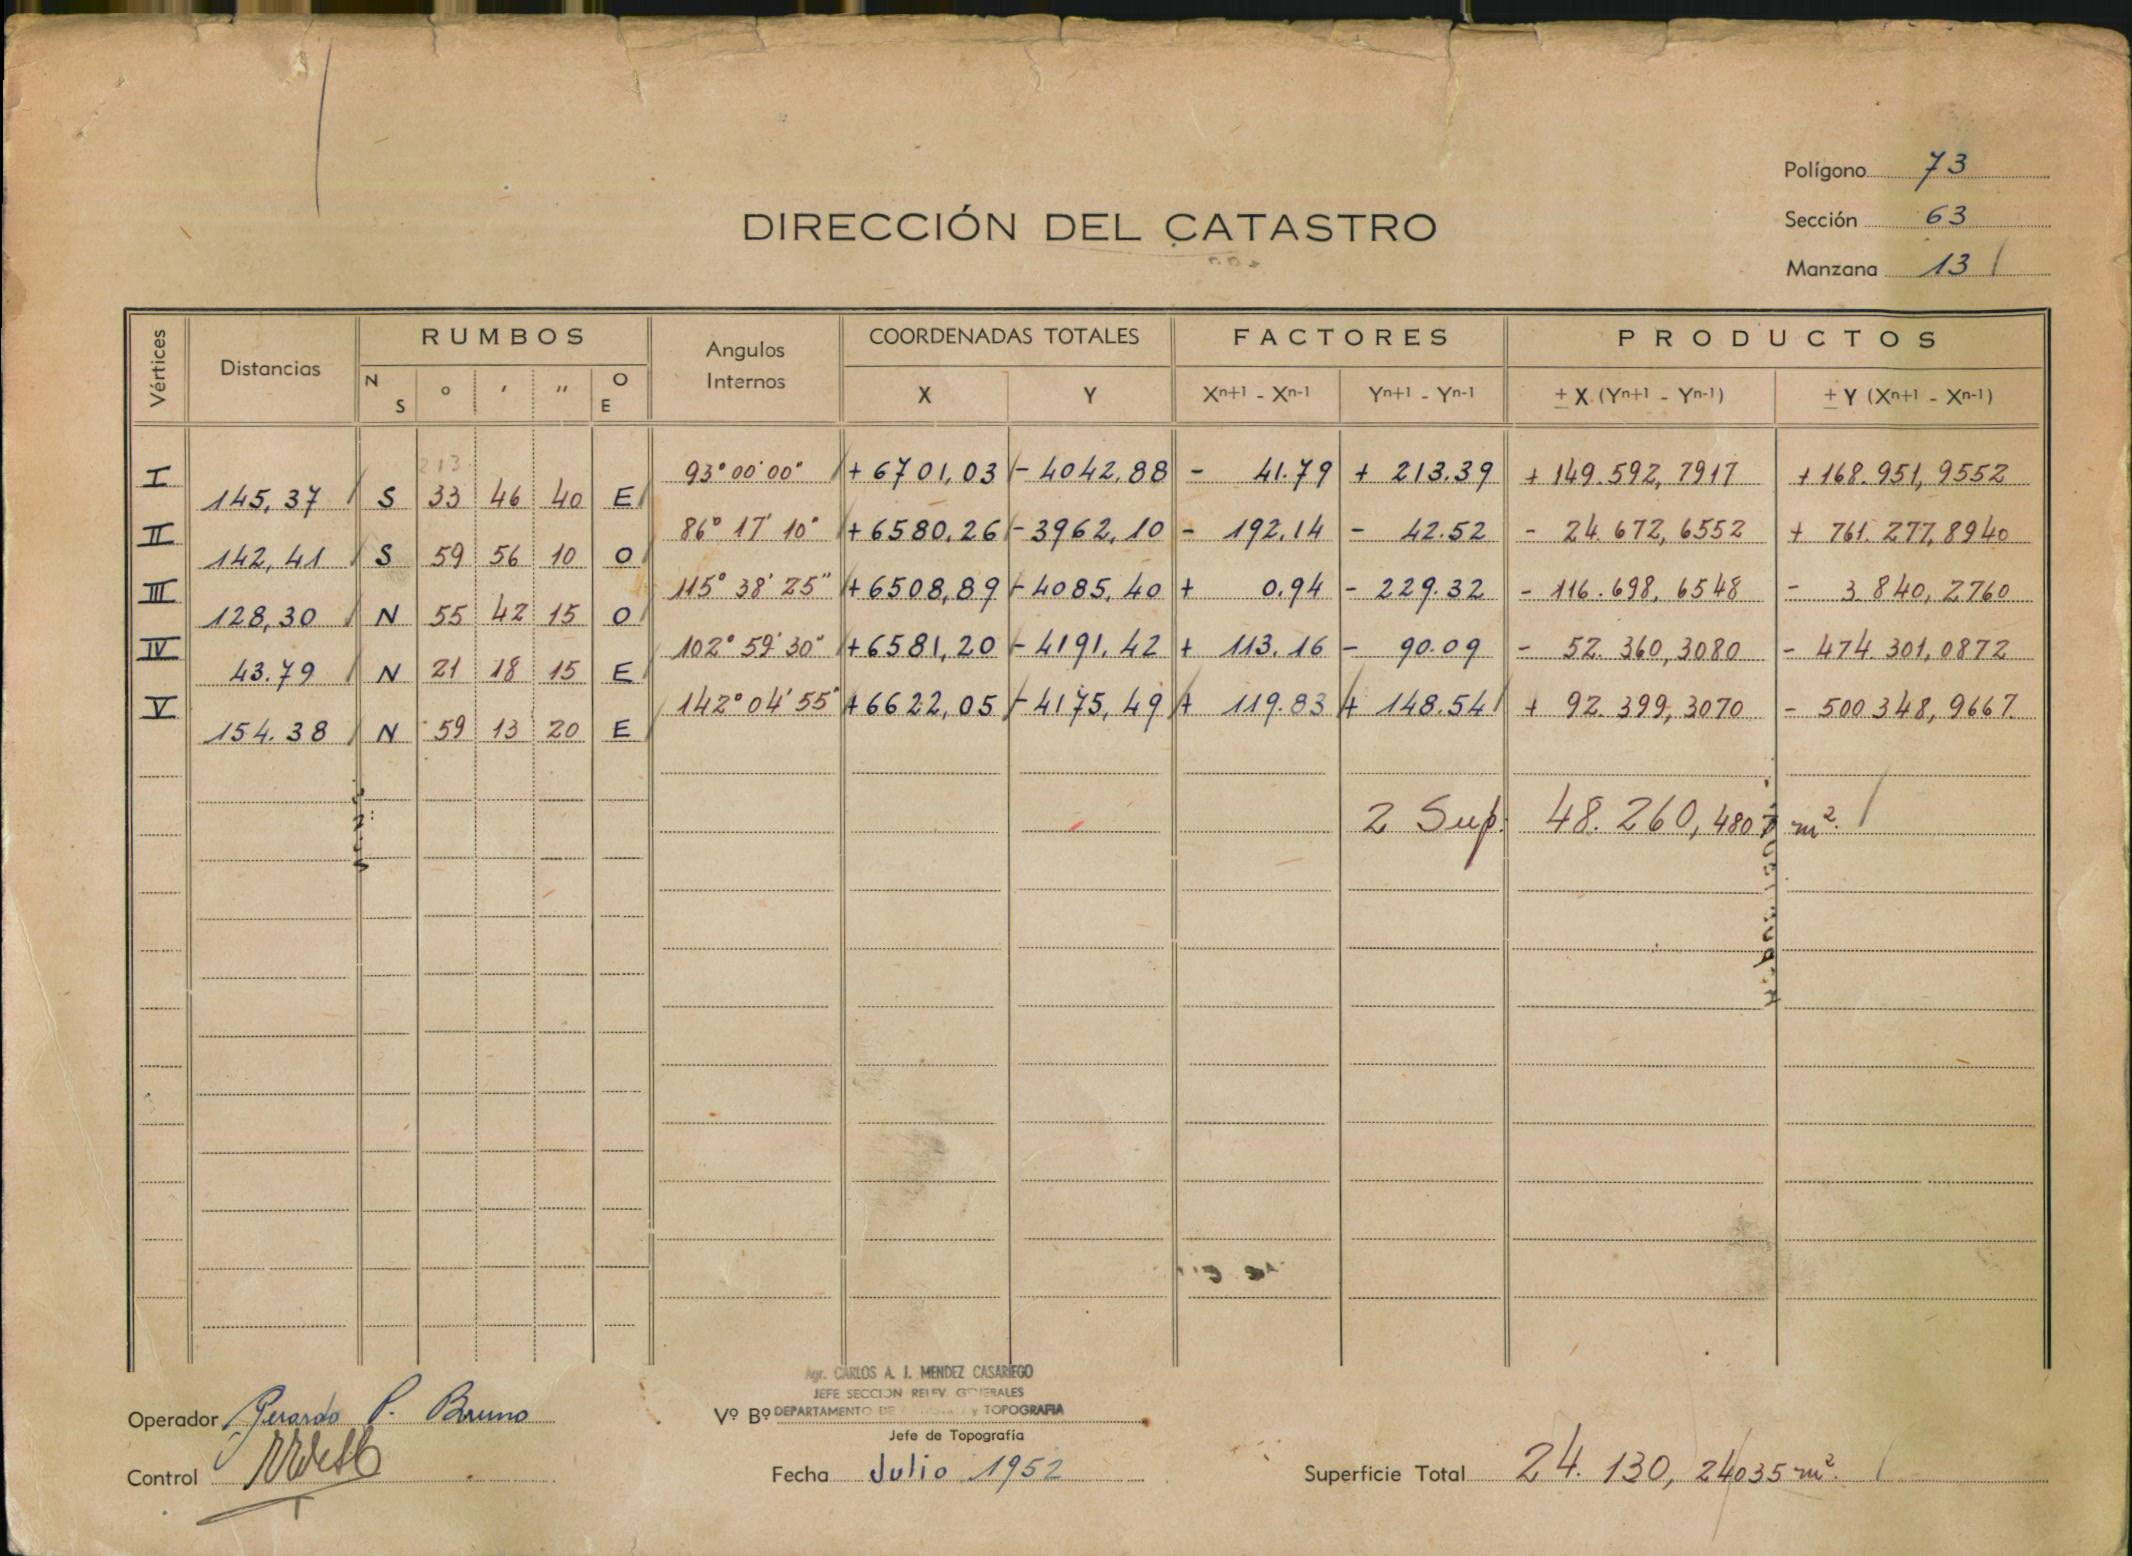 Polígono 73
Sección 63
Manzana 13
DIRECCIÓN DEL CATASTRO
Vértices Distancias RUMBOS Angulos Internos COORDENADAS TOTALES FACTORES PRODUCTOS
N S ° ′ ″ O E X Y Xn+1 - Xn-1 Yn+1 - Yn-1 ± X (Yn+1 - Yn-1) ± Y (Xn+1 - Xn-1)
213
I 93° 00' 00" + 6701,03 - 4042,88 - 41.79 + 213.39 + 149.592,7917 + 168.951,9552
145,37 S 33 46 40 E
II 86° 17' 10" + 6580,26 - 3962,10 - 192.14 - 42.52 - 24.672,6552 + 761.277,8940
142,41 S 59 56 10 O
III 115° 38' 25" + 6508,89 - 4085,40 + 0.94 - 229.32 - 116.698,6548 - 3.840,2760
128,30 N 55 42 15 O
IV 102° 59' 30" + 6581,20 - 4191,42 + 113.16 - 90.09 - 52.360,3080 - 474.301,0872
43.79 N 21 18 15 E
V 142° 04' 55" + 6622,05 - 4175,49 + 119.83 + 148.54 + 92.399,3070 - 500348,9667
154.38 N 59 13 20 E
2 Sup. 48.260,4807 m².
Agr. CARLOS A. J. MENDEZ CASARIEGO
JEFE SECCION RELEV. GENERALES
Operador Gerardo P. Bruno Vº Bº DEPARTAMENTO DE y TOPOGRAFIA
Jefe de Topografía
Control Fecha Julio 1952 Superficie Total 24.130,24035 m².